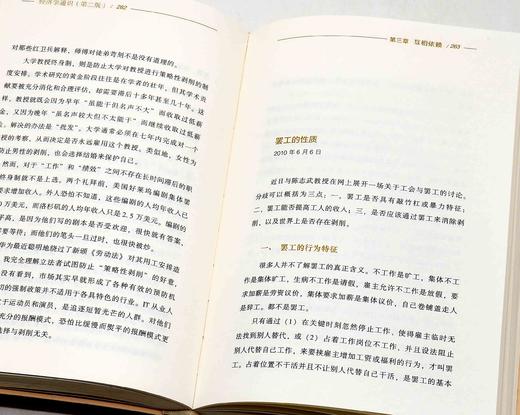 经济学通识（第二版） / 262
对那些红卫兵解释，师傅对徒弟苛刻不是没有道理的。
大学教授终身制，则是防止大学对教授进行策略性剥削的制
度安排。学术研究的黄金阶段往往是在学者的壮年，但其学术贡
献要被充分消化和合理评估，却需要滞后十多年甚至几十年。这
样，教授就既会因为早年“虽能干但名声不大”而收取过低薪
金，又因为晚年“虽名声较大但不太能干”而继续收取过低薪
金。解决的办法是“批发”。大学通常必须在七年内完成对一个
教授的考察，从而决定是否永远雇用这个教授。类似地，女性为
防止男性的剥削，也会选择结婚来保护自己。
然而，对于“工作”和“绩效”之间不存在长时间滞后的职
终身制就不上选。两个礼拜前，美国好莱坞编剧集体罢
要求增加收入。外人恐怕不知道，这些编剧的人均年收入已
万美元，而洛杉矶的人均年收入只是 2.5 万美元。编剧的
平高，是因为他们写的剧本是否受欢迎，很快就有答案，
需要平衡；而他们的笔头一旦过时，也很快被炒。
华为最近聪明地绕过了新颁《劳动法》对其用工安排造
我完全理解立法者试图防止“策略性剥削”的好意，
没有看到，市场其实早就形成了各种有效的预防机
的强制政策并不适用于各具特色的行业。IT 从业人
于运动员和演员，是追逐短暂光芒的人群。对他们
充分的报酬模式，恐怕比缓慢而熨平的报酬模式更
选择与剥削无关。
第三章 互相依赖 / 263
罢工的性质
2010 年 6 月 6 日
近日与陈志武教授在网上展开一场关于工会与罢工的讨论。
分歧可以概括为三点：一，罢工是否具有敲竹杠或暴力特征；
二，罢工能否提高工人的收入；三，是否应该通过罢工来消除剥
削，以及世界上是否存在剥削。
一、 罢工的行为特征
很多人并不了解罢工的真正含义。不工作是旷工，集体不工
作是集体旷工，生病不工作是请假，雇主允许不工作是放假，要
求加薪是劳资议价，集体要求加薪是集体议价，自己卷铺盖走人
是辞工。都不是罢工。
只有通过（1）在关键时刻忽然停止工作，使得雇主临时无
法找到别人替代，或（2）占着工作岗位不工作，并且设法阻止
别人代替自己工作，来要挟雇主增加工资或福利的行为，才叫罢
工。占着位置不干活并且不让别人代替自己干活，是罢工的基本